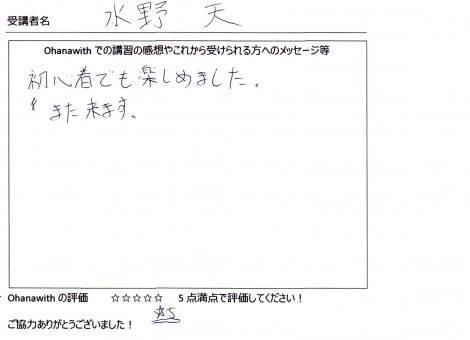 受講者名 水野 天
Ohanawith での講習の感想やこれから受けられる方へのメッセージ等
初心者でも楽しめました。
また来ます。
Ohanawith の評価 ☆☆☆☆☆ 5 点満点で評価してください！
☆5
ご協力ありがとうございました！